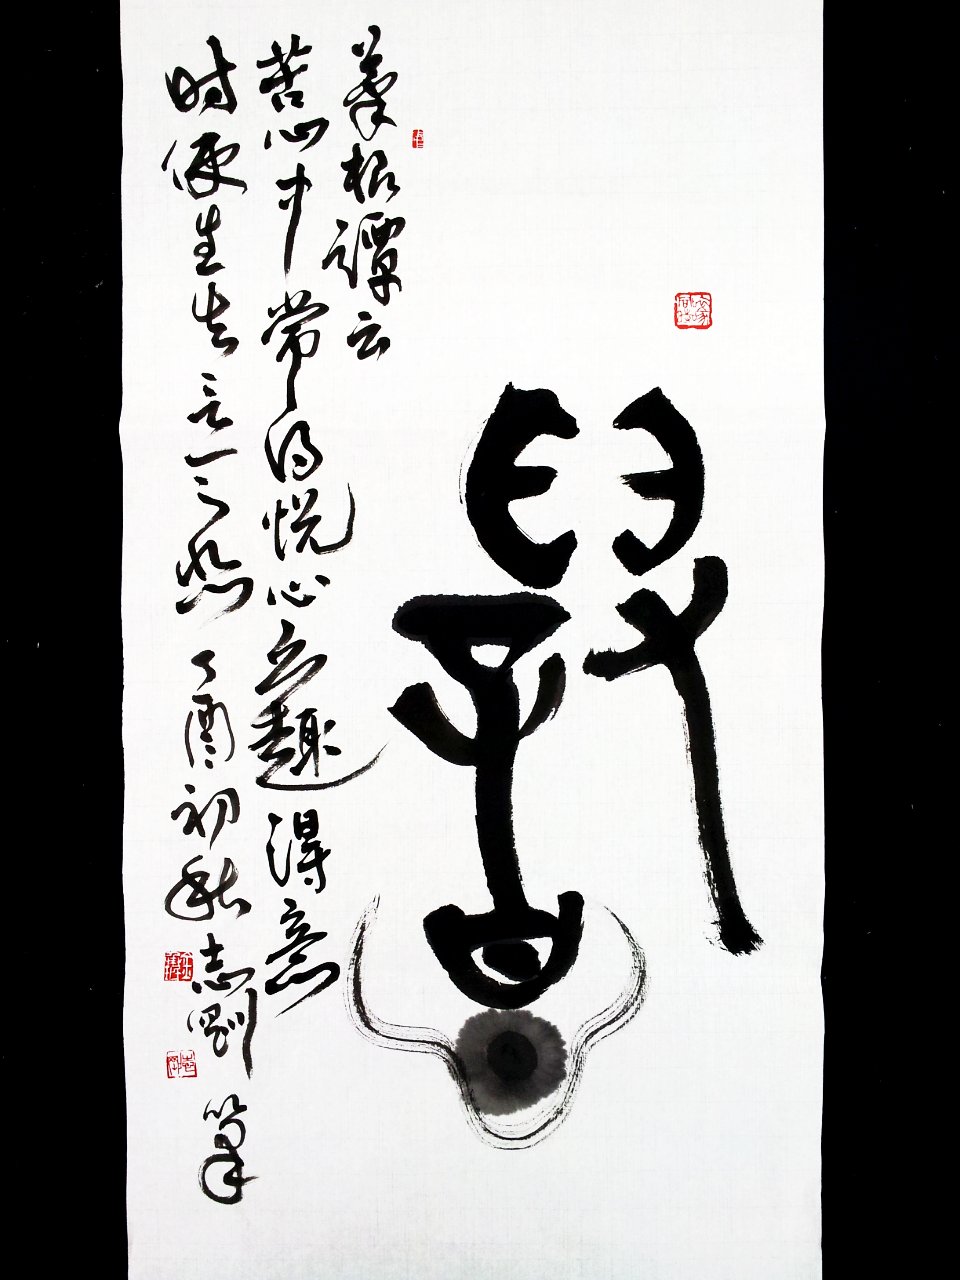 菜根譚云
苦心中常得悦心之趣得意
时便生失意之悲 丁酉初秋志剛筆